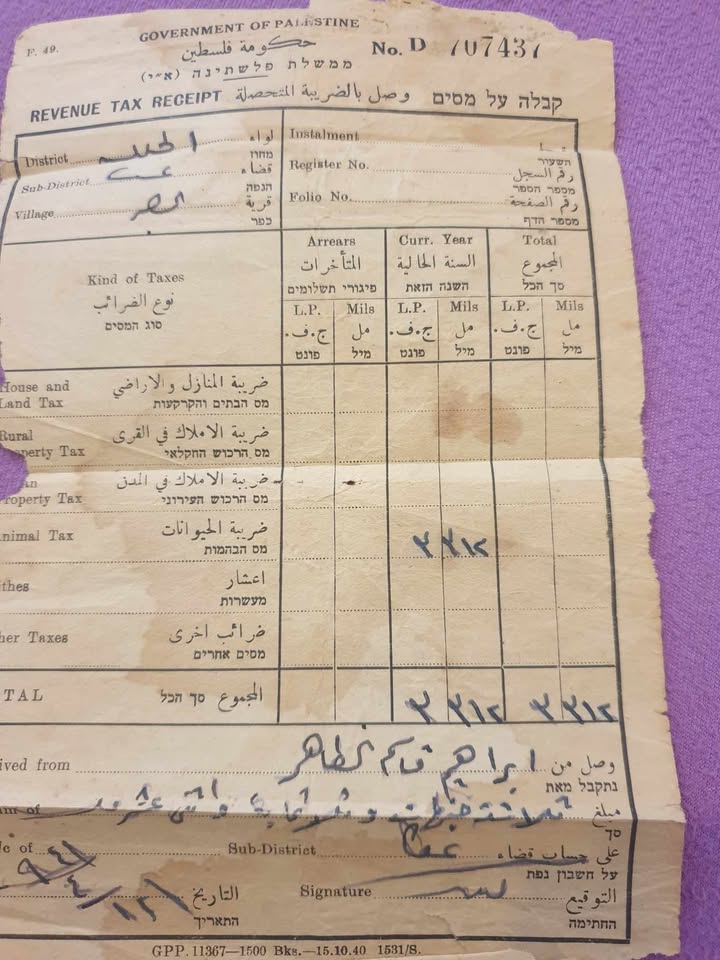 GOVERNMENT OF PALESTINE
F. 49.
حكومة فلسطين
No. D 707437
ממשלת פלשתינה (א״י)
REVENUE TAX RECEIPT وصل بالضريبة المتحصلة קבלה על מסים
District لواء
מחוז
Sub-District قضاء
הנפה
Village قرية
כפר
Instalment
השעור
Register No. رقم السجل
מספר הספר
Folio No. رقم الصفحة
מספר הדף
Kind of Taxes
نوع الضرائب
סוג המסים
Arrears Curr. Year Total
المتأخرات السنة الحالية المجموع
פיגורי תשלומים השנה הזאת סך הכל
L.P. Mils L.P. Mils L.P. Mils
ج.ف. مل ج.ف. مل ج.ف. مل
פונט מיל פונט מיל פונט מיל
House and ضريبة المنازل والاراضي
Land Tax מס הבתים והקרקעות
Rural ضريبة الاملاك في القرى
perty Tax מס הרכוש החקלאי
an ضريبة الاملاك في المدن
roperty Tax מס הרכוש העירוני
nimal Tax ضريبة الحيوانات ٣ ٣١٢
מס הבהמות
thes اعشار
מעשרות
her Taxes ضرائب اخرى
מסים אחרים
TAL المجموع סך הכל ٣ ٣١٢ ٣ ٣١٢
ived from ابراهيم قاسم وصل من
נתקבל מאת
m of ثلاثة وثلاثماية واثنى عشر مل مبلغ
סך
c of Sub-District عكا على حساب قضاء
על חשבון נפת
Signature التوقيع
החתימה
التاريخ
התאריך
GPP. 11367—1500 Bks.—15.10.40 1531/S.